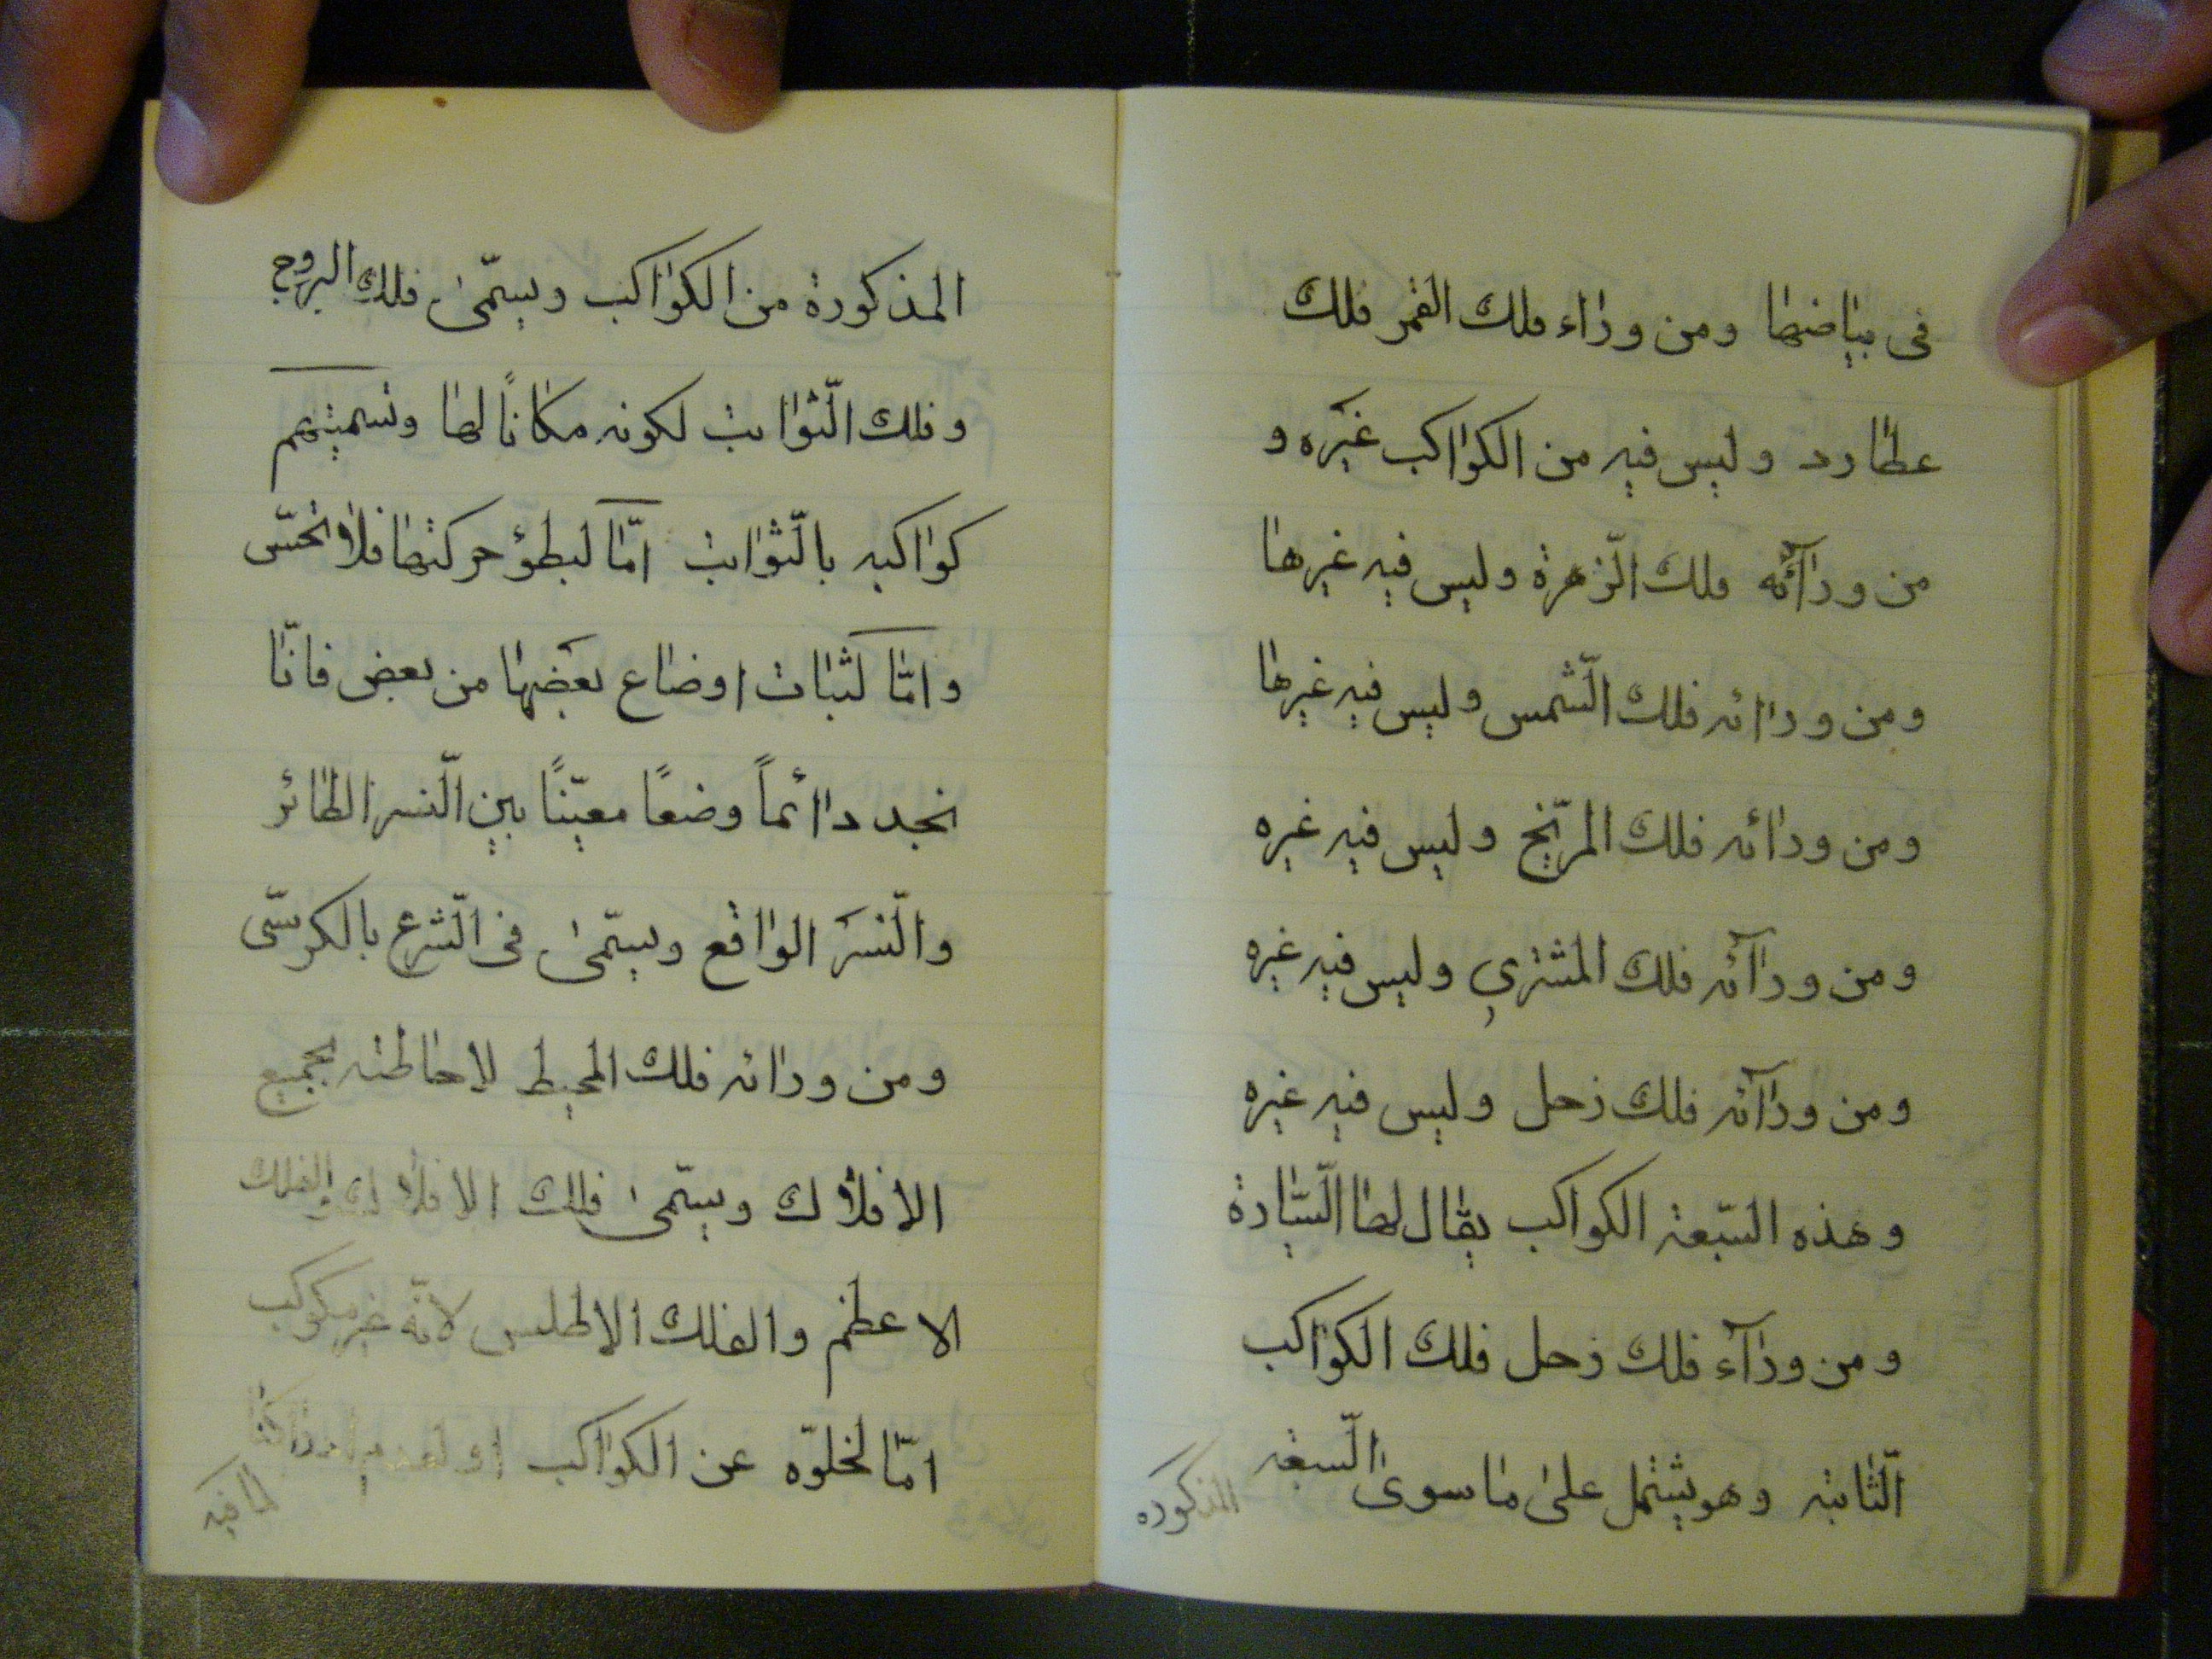 فى بياضها ومن وراء فلك القمر فلك
عطارد وليس فيه من الكواكب غيره و
من ورآئه فلك الزّهرة وليس فيه غيرها
ومن ورائه فلك الشّمس وليس فيه غيرها
ومن ورائه فلك المرّيخ وليس فيه غيره
ومن ورآئه فلك المشترى وليس فيه غيره
ومن ورآئه فلك زحل وليس فيه غيره
وهذه السّبعة الكواكب يقال لها السّيّارة
ومن ورآء فلك زحل فلك الكواكب
الثّابتة وهو يشتمل على ما سوى السّبعة
المذكوره
المذكورة من الكواكب ويسمّى فلك البروج
وفلك الثّوابت لكونه مكانًا لها وتسميتهم
كواكبه بالثّوابت امّا لبطؤ حركتها فلا تحسّ
وامّا لثبات اوضاع بعضها من بعض فانّا
نجد دائماً وضعًا معيّنًا بين النّسر الطائر
والنّسر الواقع ويسمّى فى الشّرع بالكرسّى
ومن ورائه فلك المحيط لاحاطته بجميع
الافلاك ويسمّى فلك الافلاك والفلك
الاعظم والفلك الاطلس لانّه غير مكوكب
امّا لخلوّه عن الكواكب او لعدم ادراكنا
لما فيه